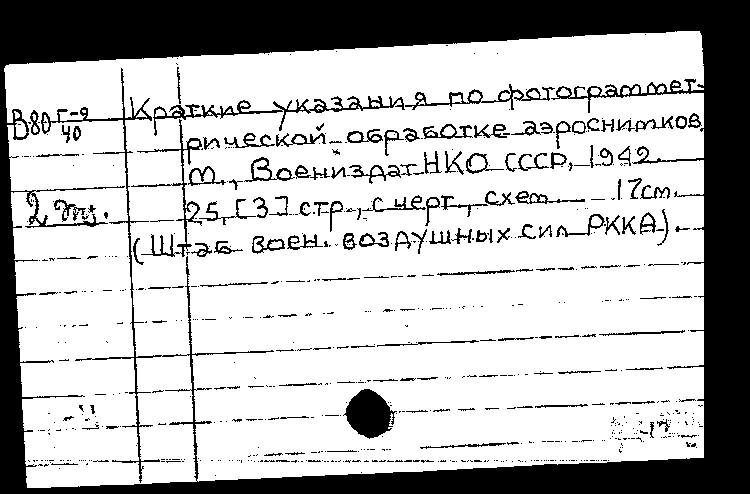 В80 Г-9/40 Краткие указания по фотограммет-
рической обработке аэроснимков.
М., Воениздат НКО СССР, 1942.
2 экз. 25, [3] стр., с черт., схем. 17см.
(Штаб воен. воздушных сил РККА).